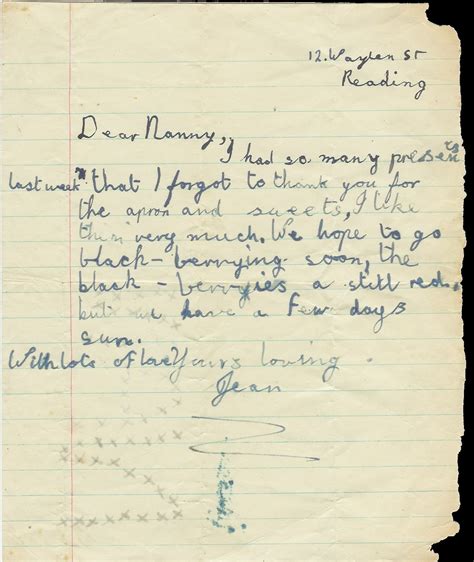 12. Waylen St
Reading
Dear Nanny,
I had so many presents
last week that I forgot to thank you for
the apron and sweets, I like
them very much. We hope to go
black-berrying soon, the
black-berryies a still red,
but we have a few days
sun.
With lots of love Yours loving.
Jean
x x x x x x x
x x x x x x x x